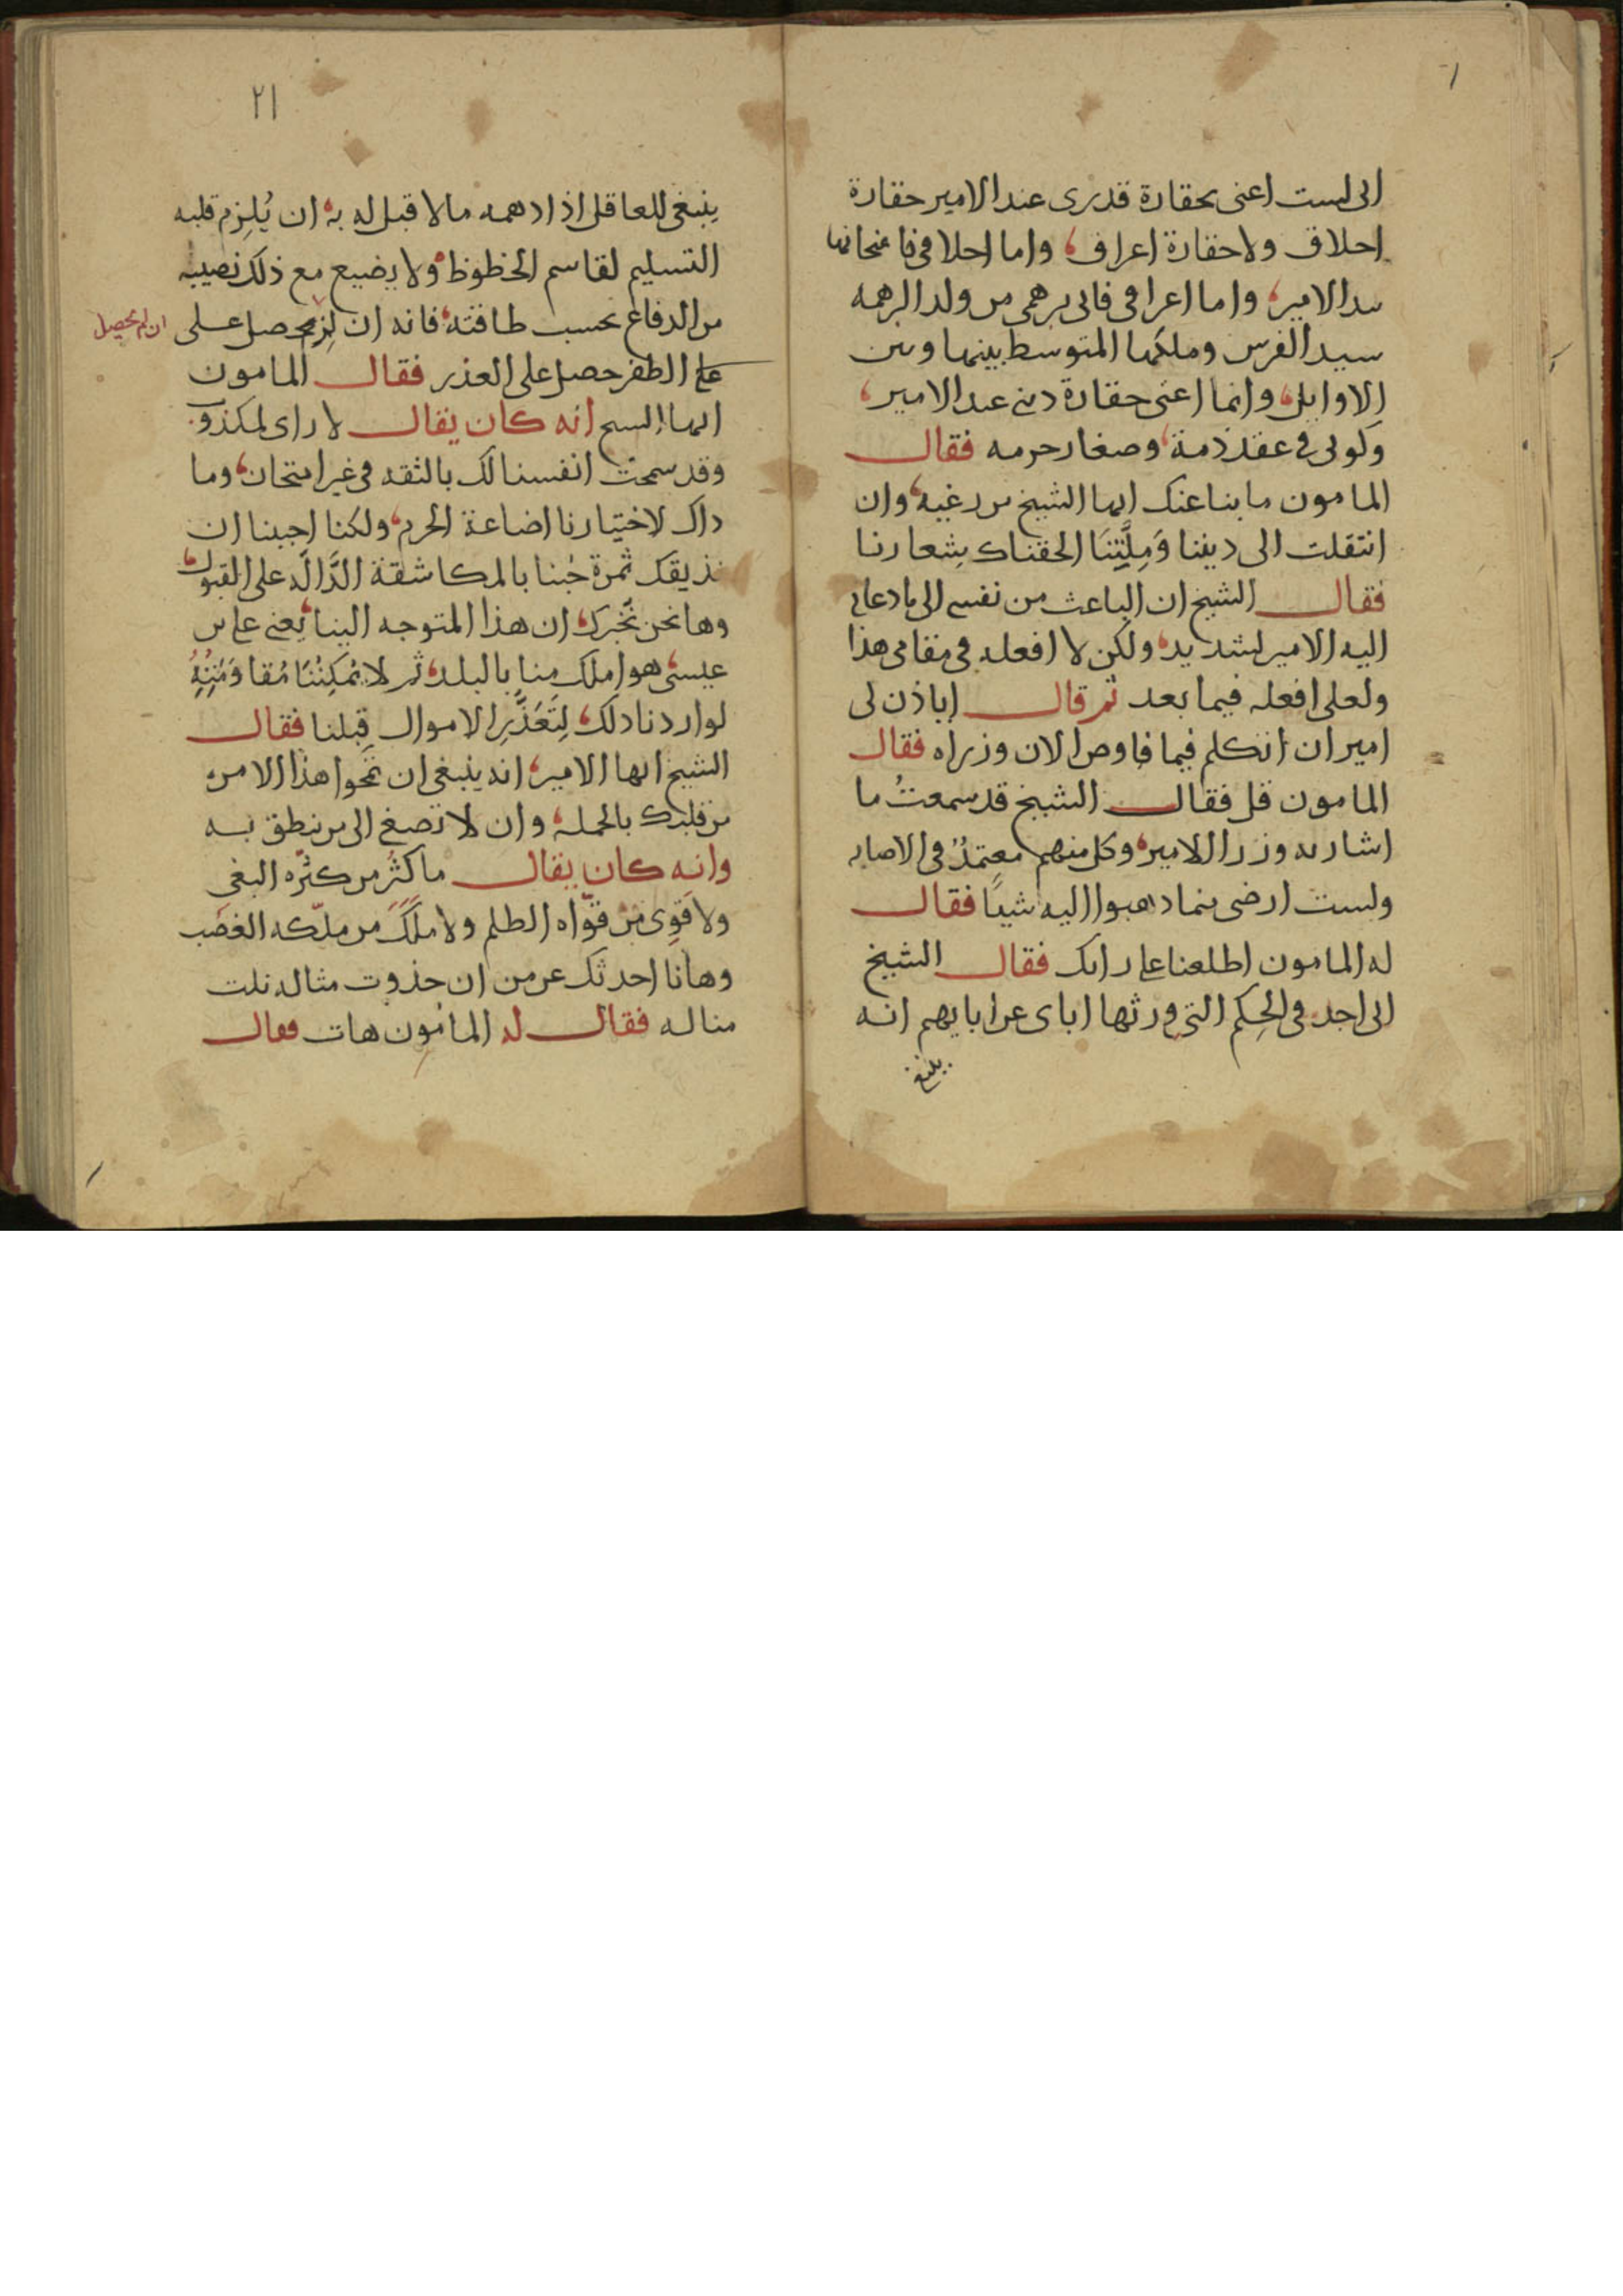 انى لست اعنى بحقارة قدرى عند الامير حقارة
اخلاق ولا حقارة اعراف واما اخلاقى فامتحانها
بيد الامير واما اعراقى فانى برهمى من ولد البرهمه
سيد الفرس وملكها المتوسط بينها وبين
الاوايل وانما اعنى حقارة دينى عند الامير
وكونى فى عقد ذمة وصغار حرمه فقال
المامون ما بنا عنك ايها الشيخ من رغبه وان
انتقلت الى ديننا وَمِلَّتِنَا الحقناك بِشعارنا
فقال الشيخ ان الباعث من نفسى الى ما دعانى
اليه الامير لشديد ولكن لا افعله فى مقامى هذا
ولعلى افعله فيما بعد ثم قال اياذن لى
امير ان اتكلم فيما فاوض الان وزراه فقال
المامون قل فقال الشيخ قد سمعتُ ما
اشار به وزرا الامير وكل منهم معتمدٌ فى الاصابه
ولست ارضى بما ذهبوا اليه شيئًا فقال
له المامون اطلعنا على رايك فقال الشيخ
انى اجد فى الحِكم التى ورثها اباى عن ابايهم انه
ينبغى
٢١
ينبغى للعاقل اذا دهمه مالا قبل له به ان يُلزِم قلبه
التسليم لقاسم الحظوظ ولا يضيع مع ذلك نصيبه
من الدفاع بحسب طاقته فانه ان لم يحصل على
ان لم يحصل
على الظفر حصل على العذر فقال المامون
ايها الشيخ انه كان يقال لا راى لمكذوب
وقد سمحت انفسنا لك بالثقه فى غير امتحان وما
ذاك لاختيارنا اضاعة الحزم ولكنا احببنا ان
نذيقك ثمرة حُبنا بالمكاشفة الدَّالَّه على القبول
وها نحن نخبرك ان هذا المتوجه الينا يعنى على بن
عيسى هو املك منا بالبلد ثم لا يُمْكِنُنَا مُقاوَمَتُهُ
لو اردنا ذلك لِتَعَذُّرِ الاموال قِبلنا فقال
الشيخ ايها الامير انه ينبغى ان تمحوا هذا الامر
من قلبك بالجمله وان لا تصغى الى من ينطق به
وانه كان يقال ما كثُر من كثّره البغى
ولا قَوِى من قوّاه الظلم ولا مَلَكَ من ملّكه الغصْب
وها انا احدثك عن من ان حذوت مثاله نلت
مناله فقال له المامون هات فقال